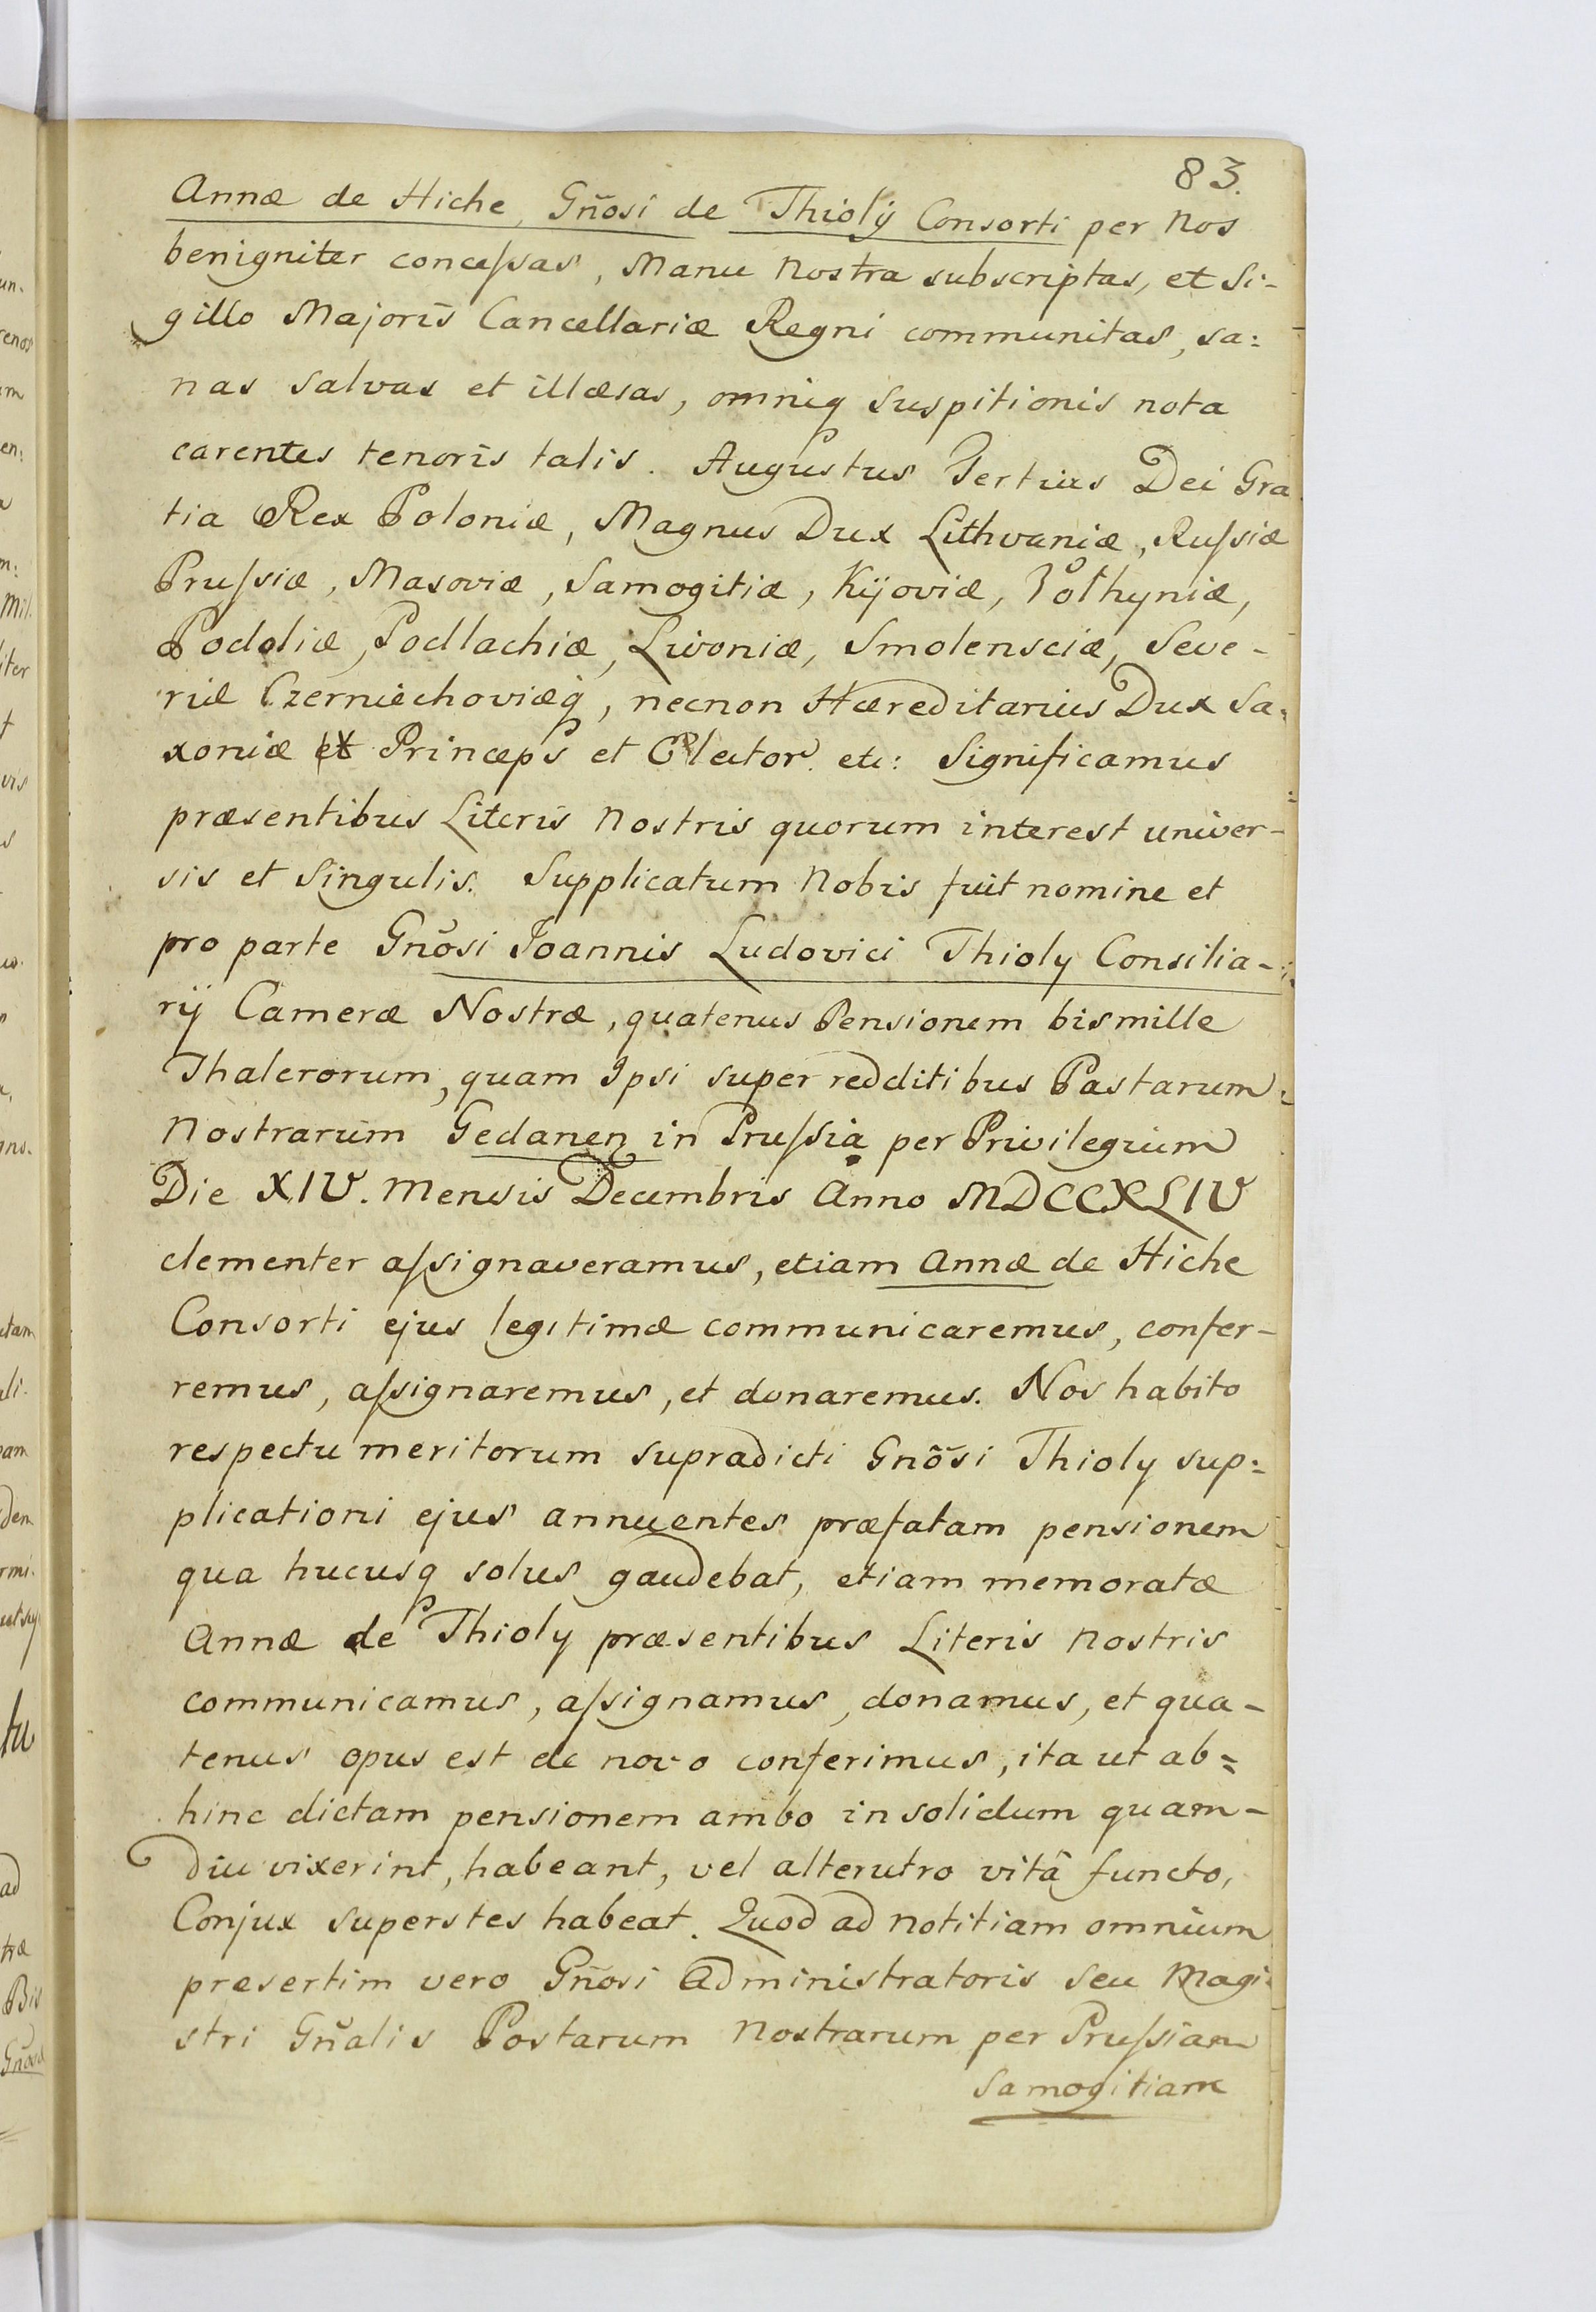 83.
Annæ de Hiche, Gñosi de Thiolÿ Consorti per Nos
benigniter concessas, Manu Nostra subscriptas, et Si-
gillo Majoris Cancellariæ Regni communitas, sa:
nas salvas et illæsas, omniq suspitionis nota
carentes tenoris talis. Augustus Tertius Dei Gra
tia Rex Poloniæ, Magnus Dux Lithvaniæ, Russiæ
Prussiæ, Masoviæ, Samogitiæ, Kijoviæ, Volhyniæ,
Podoliæ, Podlachiæ, Livoniæ, Smolensciæ, Seve-
riæ Czerniechoviæq, necnon Hæreditarius Dux Sa:
xoniæ et Princeps et Elector etc: Significamus
præsentibus Literis Nostris quorum interest univer-
sis et Singulis. Supplicatum Nobis fuit nomine et
pro parte Gñosi Joannis Ludovici Thioly Consilia-
rij Cameræ Nostræ, quatenus Pensionem bismille
Thalerorum, quam Ipsi super redditibus Pastarum
Nostrarum Gedanen in Prussia per Privilegium
Die XIV. Mensis Decembris Anno MDCCXLIV
clementer assignaveramus, etiam Annæ de Hiche
Consorti ejus legitimæ communicaremus, confer-
remus, assignaremus, et donaremus. Nos habito
respectu meritorum supradicti Gnõsi Thioly sup:
plicationi ejus annuentes præfatam pensionem
qua hucusq solus gaudebat, etiam memoratæ
Annæ de Thioly præsentibus Literis Nostris
communicamus, assignamus, donamus, et qua-
tenus opus est de novo conferimus, ita ut ab=
hinc dictam pensionem ambo in solidum quam-
diu vixerint, habeant, vel alterutro vitâ functo,
Conjux superstes habeat. Quod ad notitiam omnium
presertim vero Gñosi Administratoris seu Magi:
stri Gñalis Postarum Nostrarum per Prussiam
Samogitiam